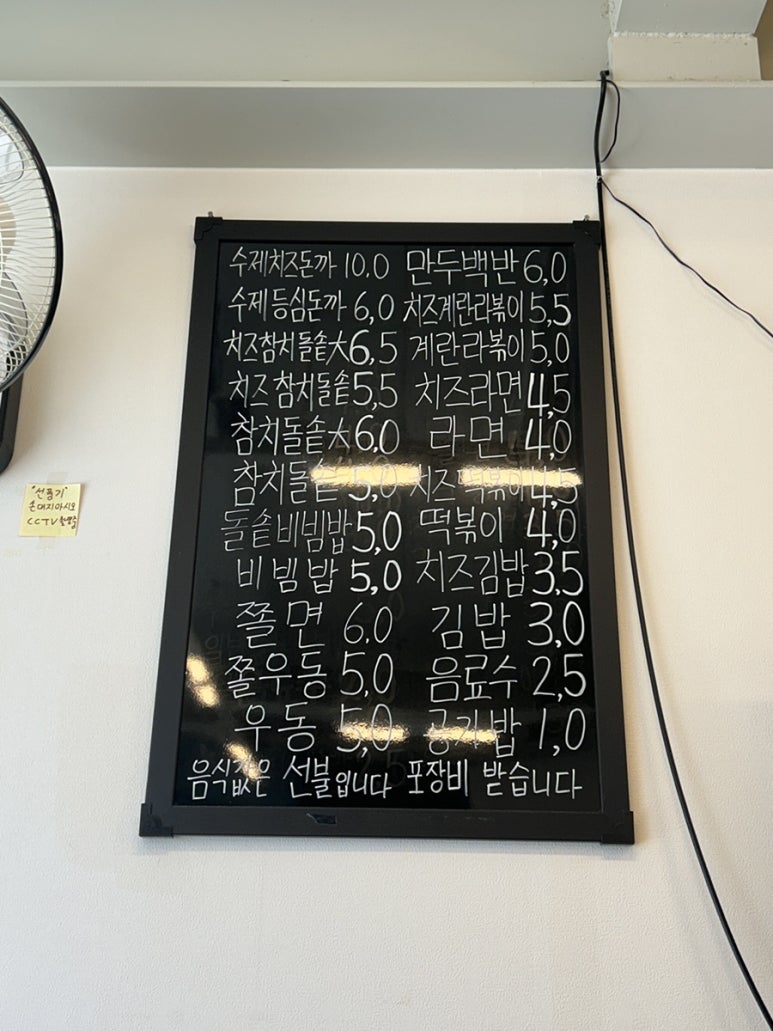 수제치즈돈까 10,0
수제등심돈까 6,0
치즈참치돌솥大 6,5
치즈참치돌솥 5,5
참치돌솥大 6,0
참치돌솥 5,0
돌솥비빔밥 5,0
비빔밥 5,0
쫄면 6,0
쫄우동 5,0
우동 5,0
만두백반 6,0
치즈계란라볶이 5,5
계란라볶이 5,0
치즈라면 4,5
라면 4,0
치즈떡볶이 4,5
떡볶이 4,0
치즈김밥 3,5
김밥 3,0
음료수 2,5
공기밥 1,0
음식값은 선불입니다 포장비 받습니다
"선풍기"
손대지마시오
CCTV